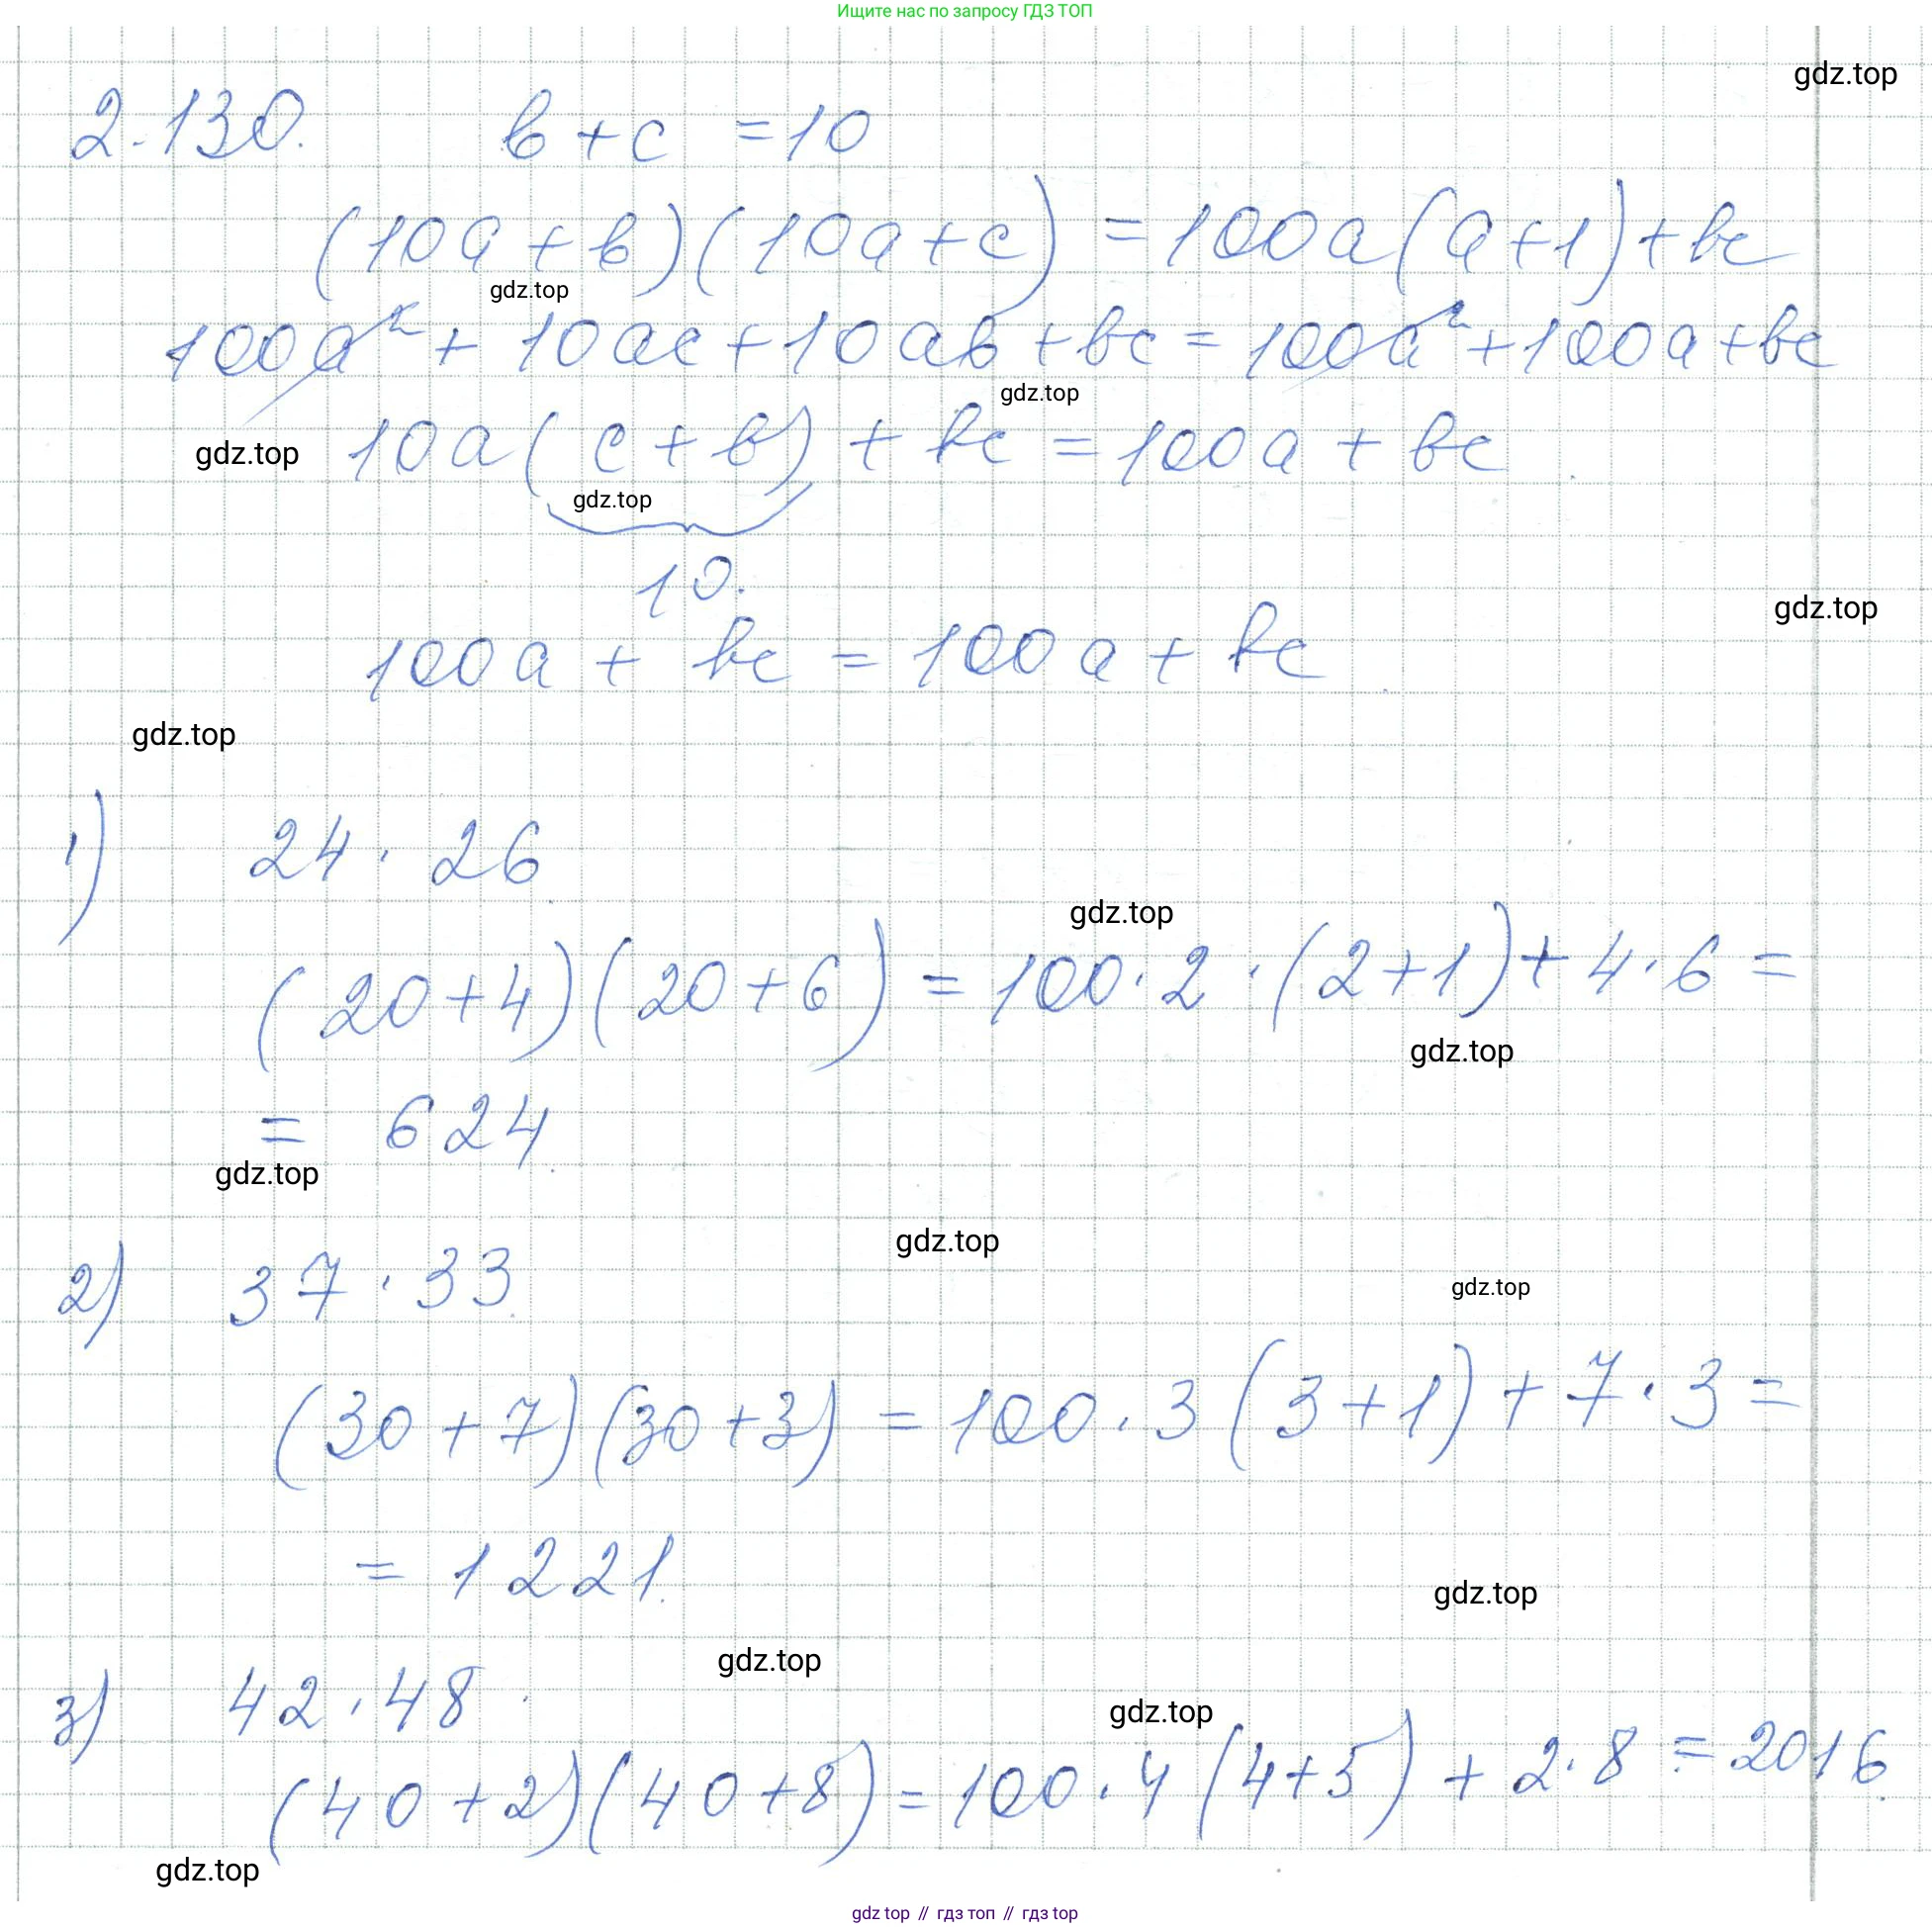 Ищите нас по запросу ГДЗ ТОП
gdz.top
2.130. в + с = 10
(10а + в)(10а + с) = 100а(а+1) + вс
gdz.top
100а² + 10ас + 10ав + вс = 100а² + 100а + вс
gdz.top
10а(с + в) + вс = 100а + вс
gdz.top
gdz.top
10.
gdz.top
100а + вс = 100а + вс
gdz.top
1) 24 · 26
gdz.top
(20+4)(20+6) = 100·2·(2+1)+4·6 =
gdz.top
= 624.
gdz.top
gdz.top
2) 37 · 33
gdz.top
(30+7)(30+3) = 100·3(3+1)+7·3 =
= 1221.
gdz.top
gdz.top
3) 42·48
gdz.top
(40+2)(40+8) = 100·4(4+5)+2·8 = 2016.
gdz.top
gdz top // гдз топ // гдз top